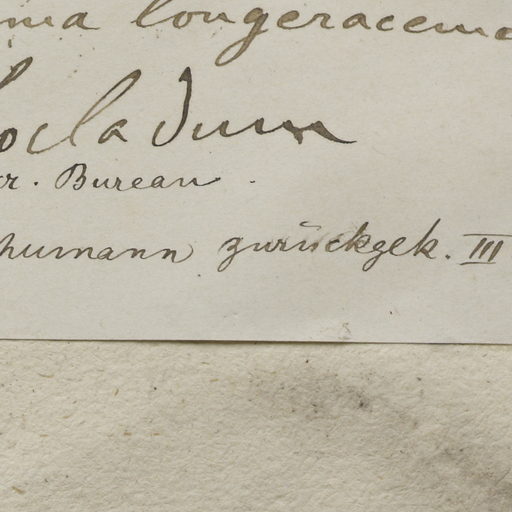 ma longeracemo
ocladum
r. Bureau.
humann zurückgek. III